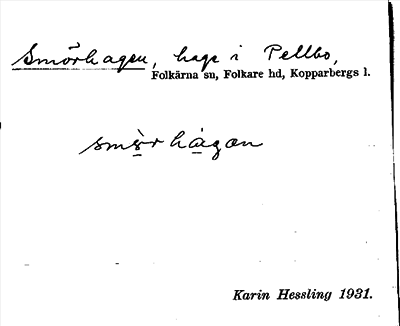 Smörhagen, hage i Pellbo,
Folkärna sn, Folkare hd, Kopparbergs l.
smö̀rhágan
Karin Hessling 1931.